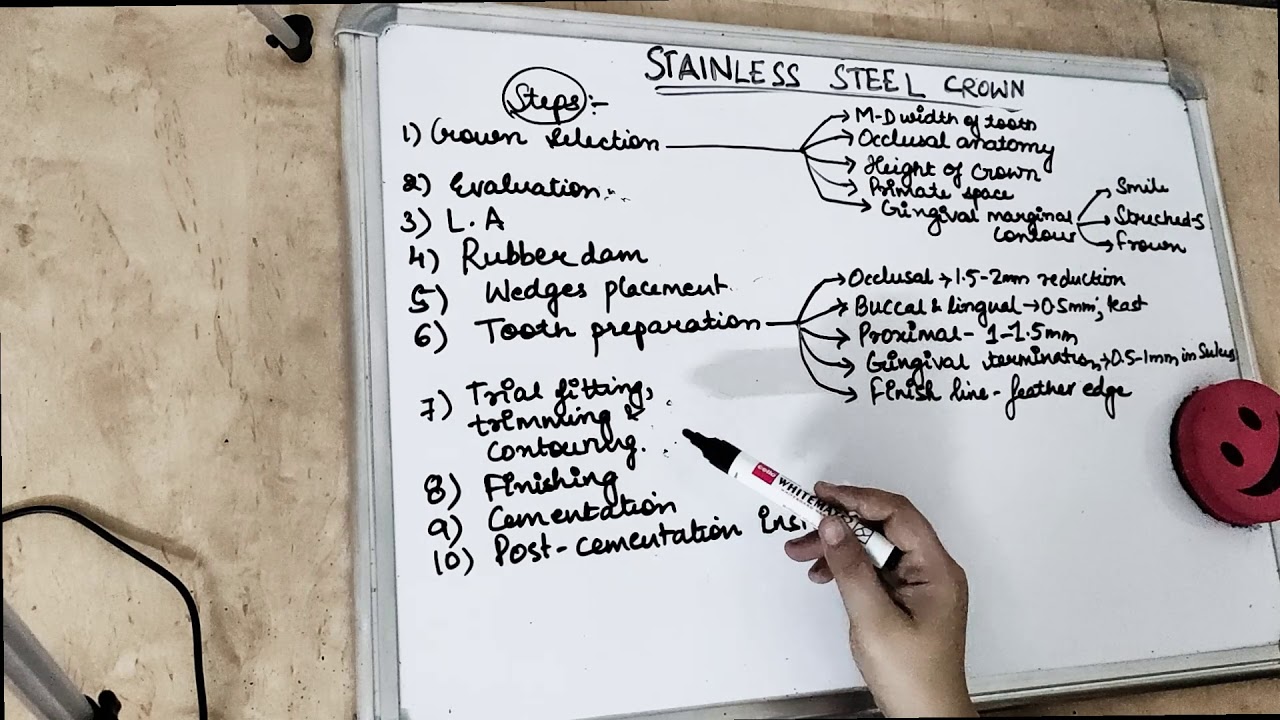 STAINLESS STEEL CROWN
Steps:-
1) Crown selection
M-D width of tooth
Occlusal anatomy
Height of Crown
Primate space
Gingival marginal
contour
Smile
Streched-S
Frown
2) Evaluation
3) L.A
4) Rubber dam
5) Wedges placement
6) Tooth preparation
Occlusal → 1.5-2mm reduction
Buccal & lingual → 0.5mm, least
Proximal - 1-1.5mm
Gingival termination → 0.5-1mm in Sulcus
Finish line - feather edge
7) Trial fitting,
trimming &
contouring.
8) Finishing
9) Cementation
10) Post-cementation
cello WHITEMATE